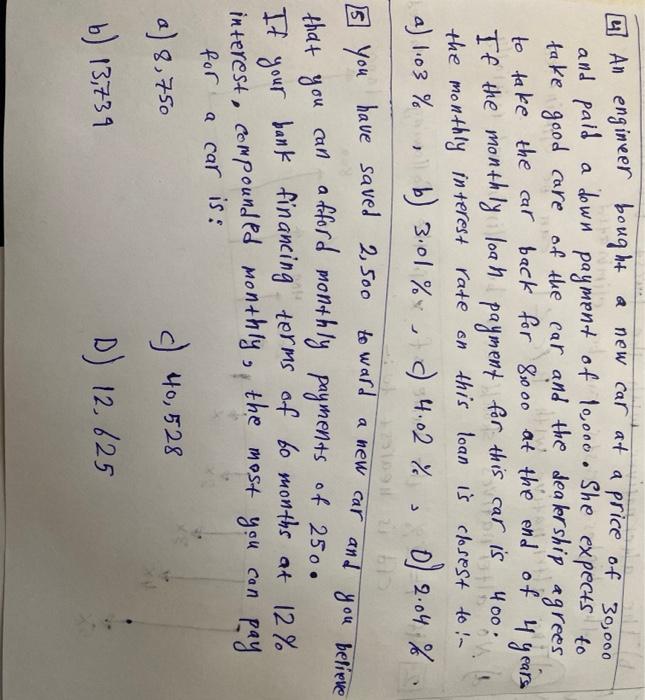 4 An engineer bought a new car at a price of 30,000
and paid a down payment of 10,000. She expects to
take good care of the car and the dealership agrees
to take the car back for 8000 at the end of 4 years
If the monthly loan payment for this car is 400.
the monthly interest rate on this loan is closest to:-
a) 1.03 % , b) 3.01 % , c) 4.02 % , D) 2.04 %
5 You have saved 2,500 toward a new car and you believe
that you can afford monthly payments of 250.
If your bank financing terms of 60 months at 12%
interest, compounded monthly, the most you can pay
for a car is:
a) 8,750 c) 40,528
b) 13,739 D) 12,625